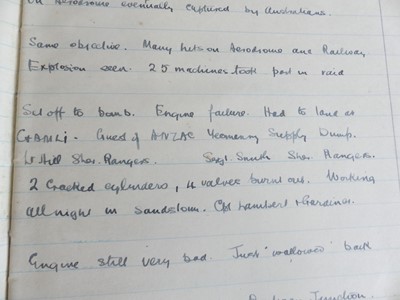 on Aerodrome eventually captured by Australians.
Same objective. Many hits on Aerodrome and Railway
Explosion seen. 25 machines took part in raid
Set off to bomb. Engine failure. Had to land at
GAMLI. Guest of ANZAC Yeomanry Supply Dump.
Lt Hill Sher. Rangers. Sergt. Smith Sher Rangers.
2 cracked cylinders, 4 valves burnt out. Working
all night in sandstorm. Lambert & Gardiner.
Engine still very bad. Just "wallowed" back
Junction